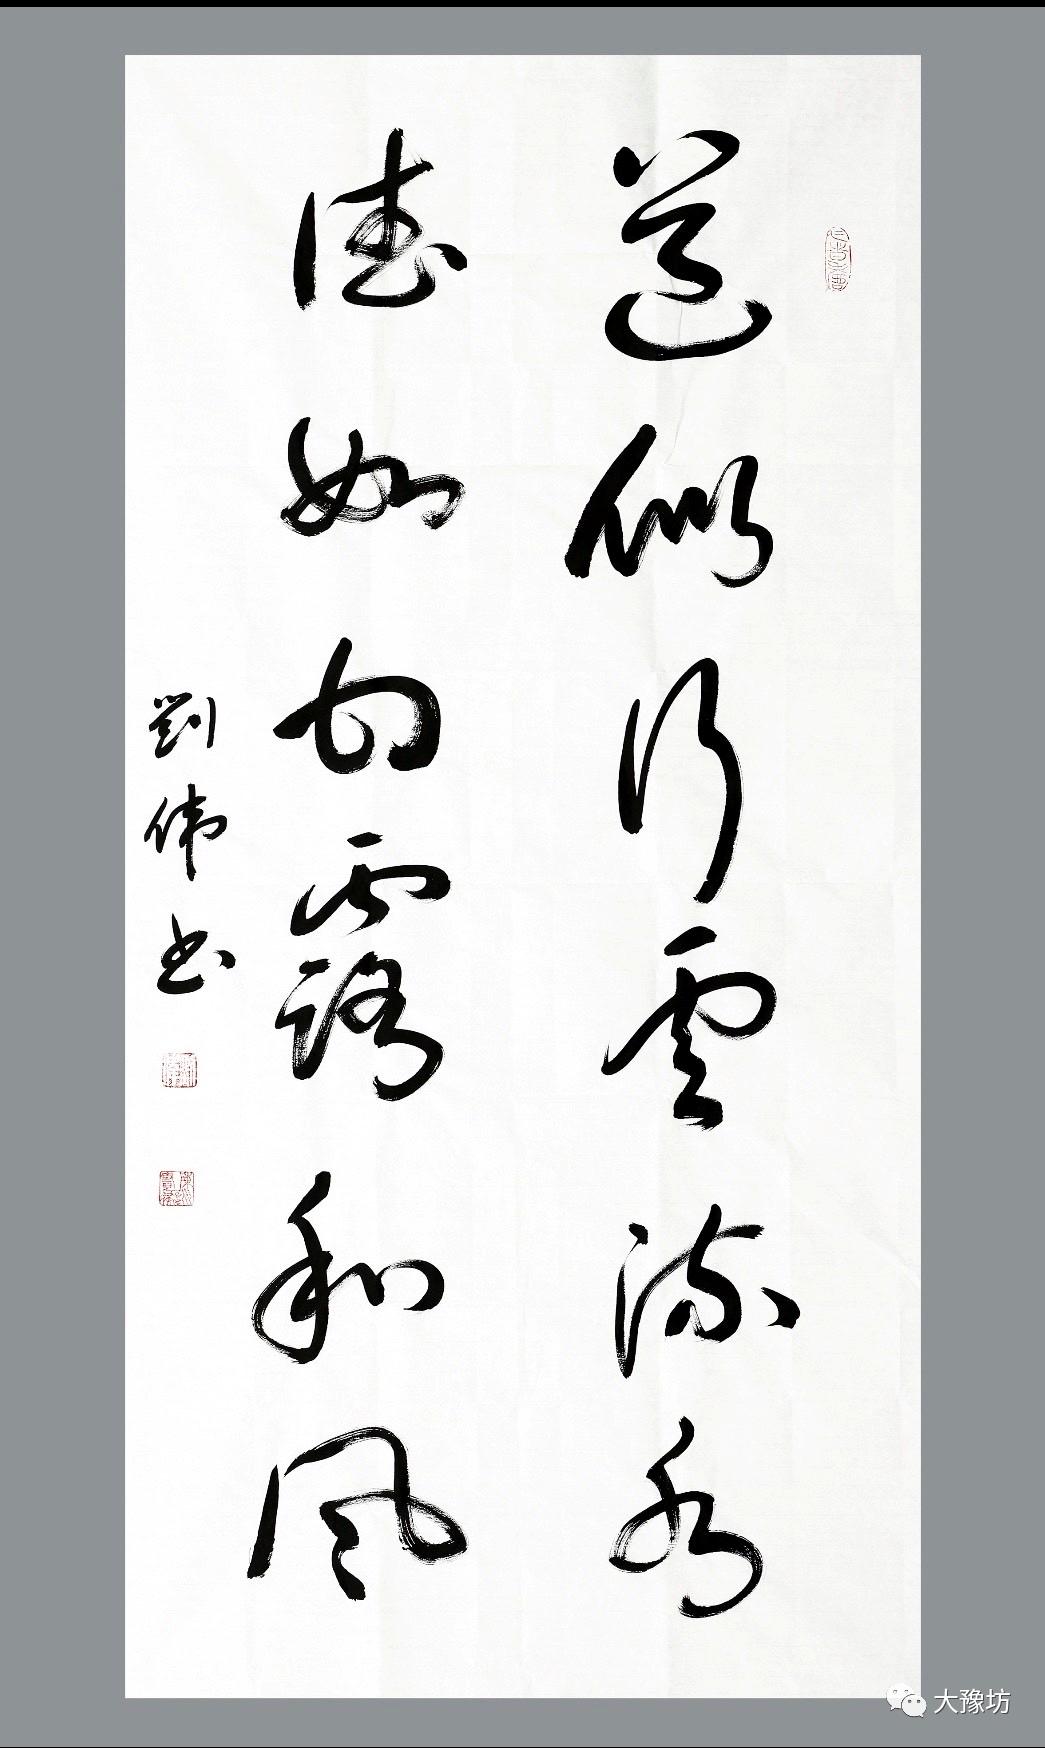 道似行雲流水
德如甘露和風
劉偉书
大豫坊